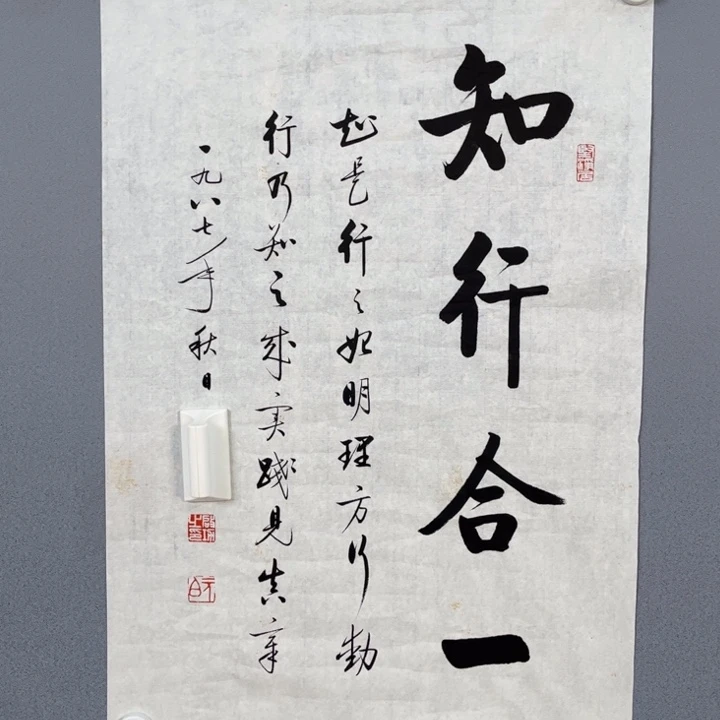 知行合一
知是行之始明理方行動
行乃知之成实踐見真章
一九八七年秋日
元白